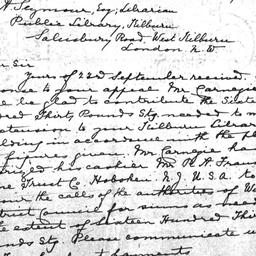 A. Seymour, Esq. Librarian
Public Library, Kilburn
Salisbury Road, West Kilburn
London. N. W
Sir
Yours of 22nd September received.
response to your appeal Mr. Carnegie
be glad to contribute the Sixteen
Hundred Thirty Pounds Stg. needed to
extension to your Kilburn Library
building in accordance with the
figures given. Mr. Carnegie has
his cashier Mr R. A. Franks
Trust Co. Hoboken. N. J. U.S.A. to
the calls of the authorities of
Council for sums as needed
the extent of Sixteen Hundred Thirty
Stg. Please communicate
payments